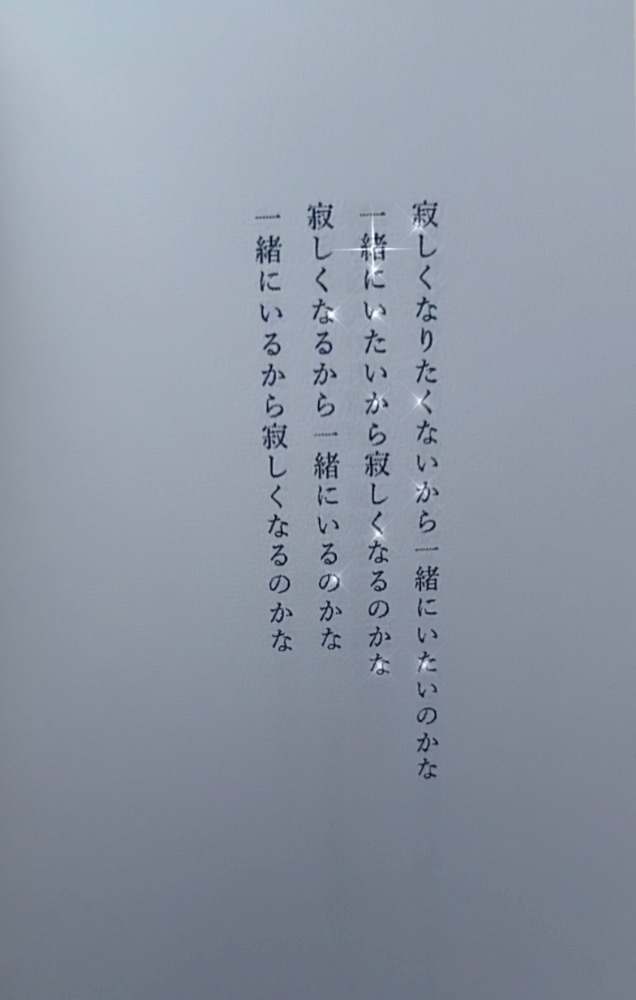 寂しくなりたくないから一緒にいたいのかな
一緒にいたいから寂しくなるのかな
寂しくなるから一緒にいるのかな
一緒にいるから寂しくなるのかな